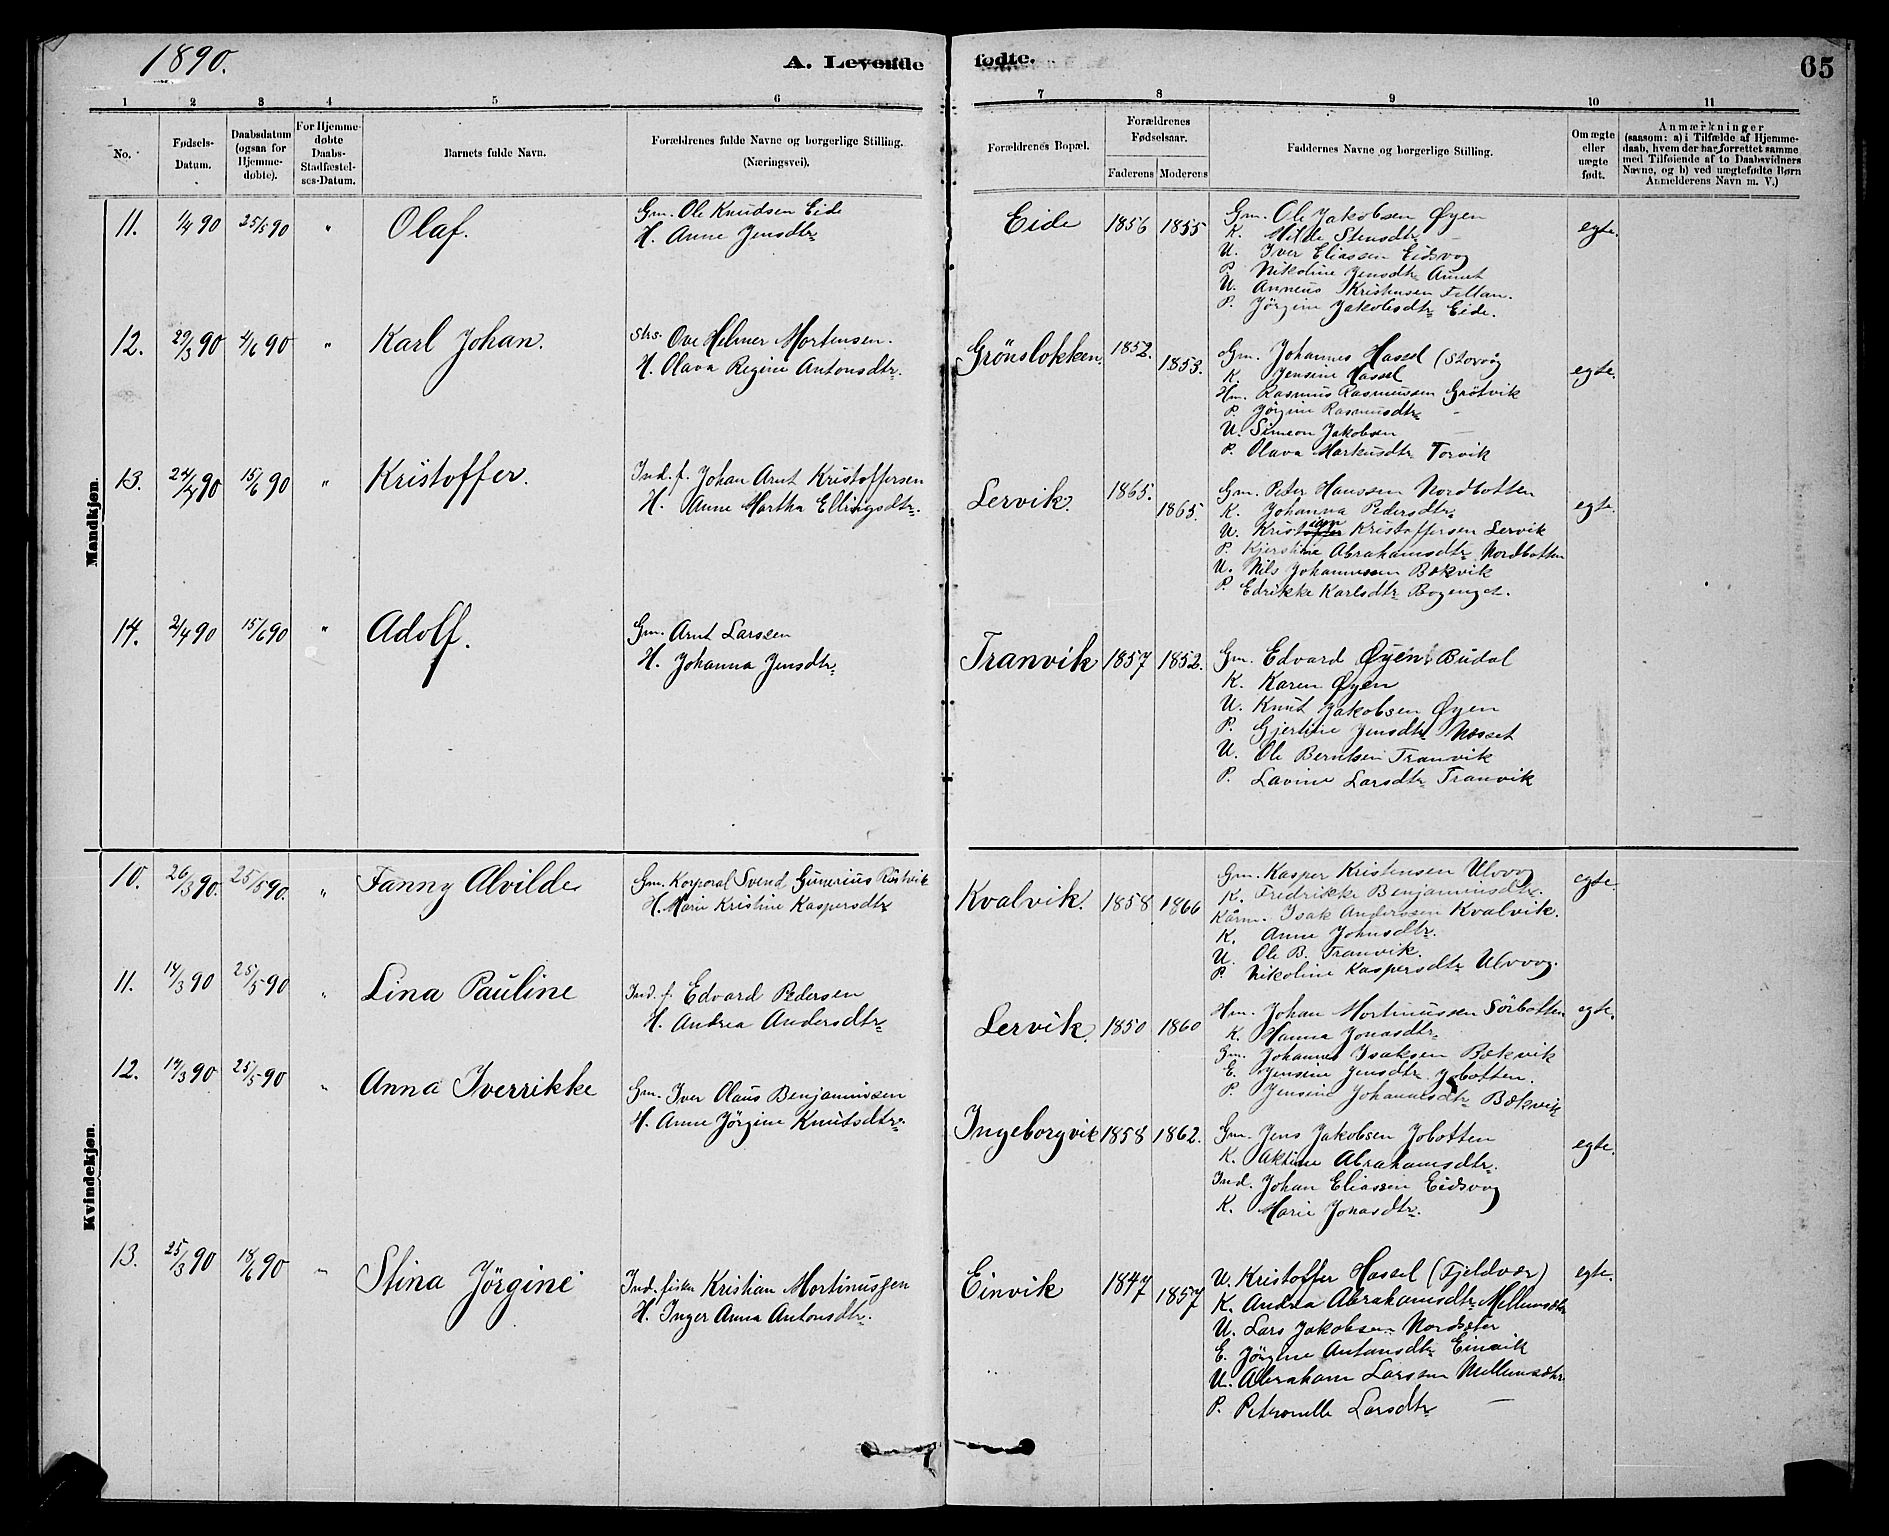 1890.
A. Levende fødte.
65
1 2 3 4 5 6 7 8 9 10 11
No.
Fødsels-Datum.
Daabsdatum (ogsaa for Hjemme-døbte).
For Hjemme-døbte Daabs-Stadfæstel-ses-Datum.
Barnets fulde Navn.
Forældrenes fulde Navne og borgerlige Stilling. (Næringsvei).
Forældrenes Bopæl.
Forældrenes Fødselsaar.
Faderens Moderens
Faddernes Navne og borgerlige Stilling.
Om ægte eller uægte født.
Anmærkninger (saasom: a) i Tilfælde af Hjemme-daab, hvem der har forrettet samme, med Tilføiende af to Daabsvidners Navne, og b) ved uægtefødte Børn Anmelderens Navn m. V.)
Mandkjøn.
11. 1/4 90 25/5 90 " Olaf.
Gm. Ole Knudsen Eide
H. Anne Jensdtr
Eide 1856 1855
Gm. Ole Jakobsen Øyen
K. Milde Stensdtr —
U. Iver Eliassen Eidsvog
P. Nikoline Jensdtr Aunet
U. Anneus Kristensen Fillan.
P. Jörgine Jakobsdtr Eide.
egte.
12. 29/3 90 4/6 90 " Karl Johan.
Strs. Ove Helmer Mortensen.
H. Olava Regine Antonsdtr.
Grönslokken 1852. 1853.
Gm. Johannes Hassel (Storvog
K. Jensine Hassel
Hm. Rasmus Rasmussen Grötvik
P. Jörgine Rasmusdtr —
U. Simeon Jakobsen —
P. Olava Markusdtr Torvik
egte.
13. 24/4 90 15/6 90 " Kristoffer.
Ind. f. Johan Arnt Kristoffersen
H. Anne Martha Ellingsdtr.
Lervik. 1865. 1865.
Gm. Peter Hanssen Nordbotten
K. Johanna Pedersdtr
U. Kristian Kristoffersen Lervik
P. Kjerstine Abrahamsdtr Nordbotten
U. Nils Johannessen Bækvik
P. Edrikke Karlsdtr Bogenget.
egte.
14. 2/4 90 15/6 90 " Adolf.
Gm. Arnt Larssen
H. Johanna Jensdtr
Tranvik 1857 1852.
Gm. Edvard Øyen Budal
K. Karen Øyen
U. Knut Jakobsen Øyen
P. Gjertine Jensdtr Næsset
U. Ole Berntsen Tranvik
P. Lavine Larsdtr Tranvik
Kvindekjøn.
10. 26/3 90. 25/5 90. " Fanny Alvilde
Gm. Korporal Svend Gunerius Röstvik
H. Marie Kristine Kaspersdtr
Kvalvik. 1858 1866
Gm. Kasper Kristensen Ulvog
K. Fredrikke Benjaminsdtr.
Kårm. Isak Anderssen Kvalvik.
K. Anne Johnsdtr.
U. Ole B. Tranvik.
P. Nikoline Kaspersdtr Ulvog.
egte.
11. 14/3 90 25/5 90 " Lina Pauline
Ind. f. Edvard Pedersen
H. Andrea Andersdtr
Lervik. 1850 1860
Hm. Johan Mortinussen Sörbotten
K. Hanna Jonasdtr
Gm. Johannes Isaksen Bækvik
E. Jensine Jensdtr Jobotten.
P. Jensine Johannesdtr Bækvik
egte.
12. 14/3 90 25/5 90 " Anna Iverrikke
Gm. Iver Olaus Benjaminsen
H. Anne Jörgine Knutsdtr.
Ingeborgvik 1858 1862.
Gm. Jens Jakobsen Jobotten
K. Aktine Abrahamsdtr.
Ind. Johan Eliassen Eidsvog
K. Marie Jonasdtr.
egte.
13. 25/3 90 18/6 90 " Stina Jörgine
Ind. fisker Kristian Mortinussen
H. Inger Anna Antonsdtr.
Einvik 1847 1857
U. Kristoffer Hassel (Fjeldvær)
K. Andrea Abrahamsdtr Mellemsæter
U. Lars Jakobsen Nordsæter
E. Jörgine Antonsdtr Einvik
U. Abraham Larssen Mellemsæter
P. Petronelle Larsdtr —
egte.